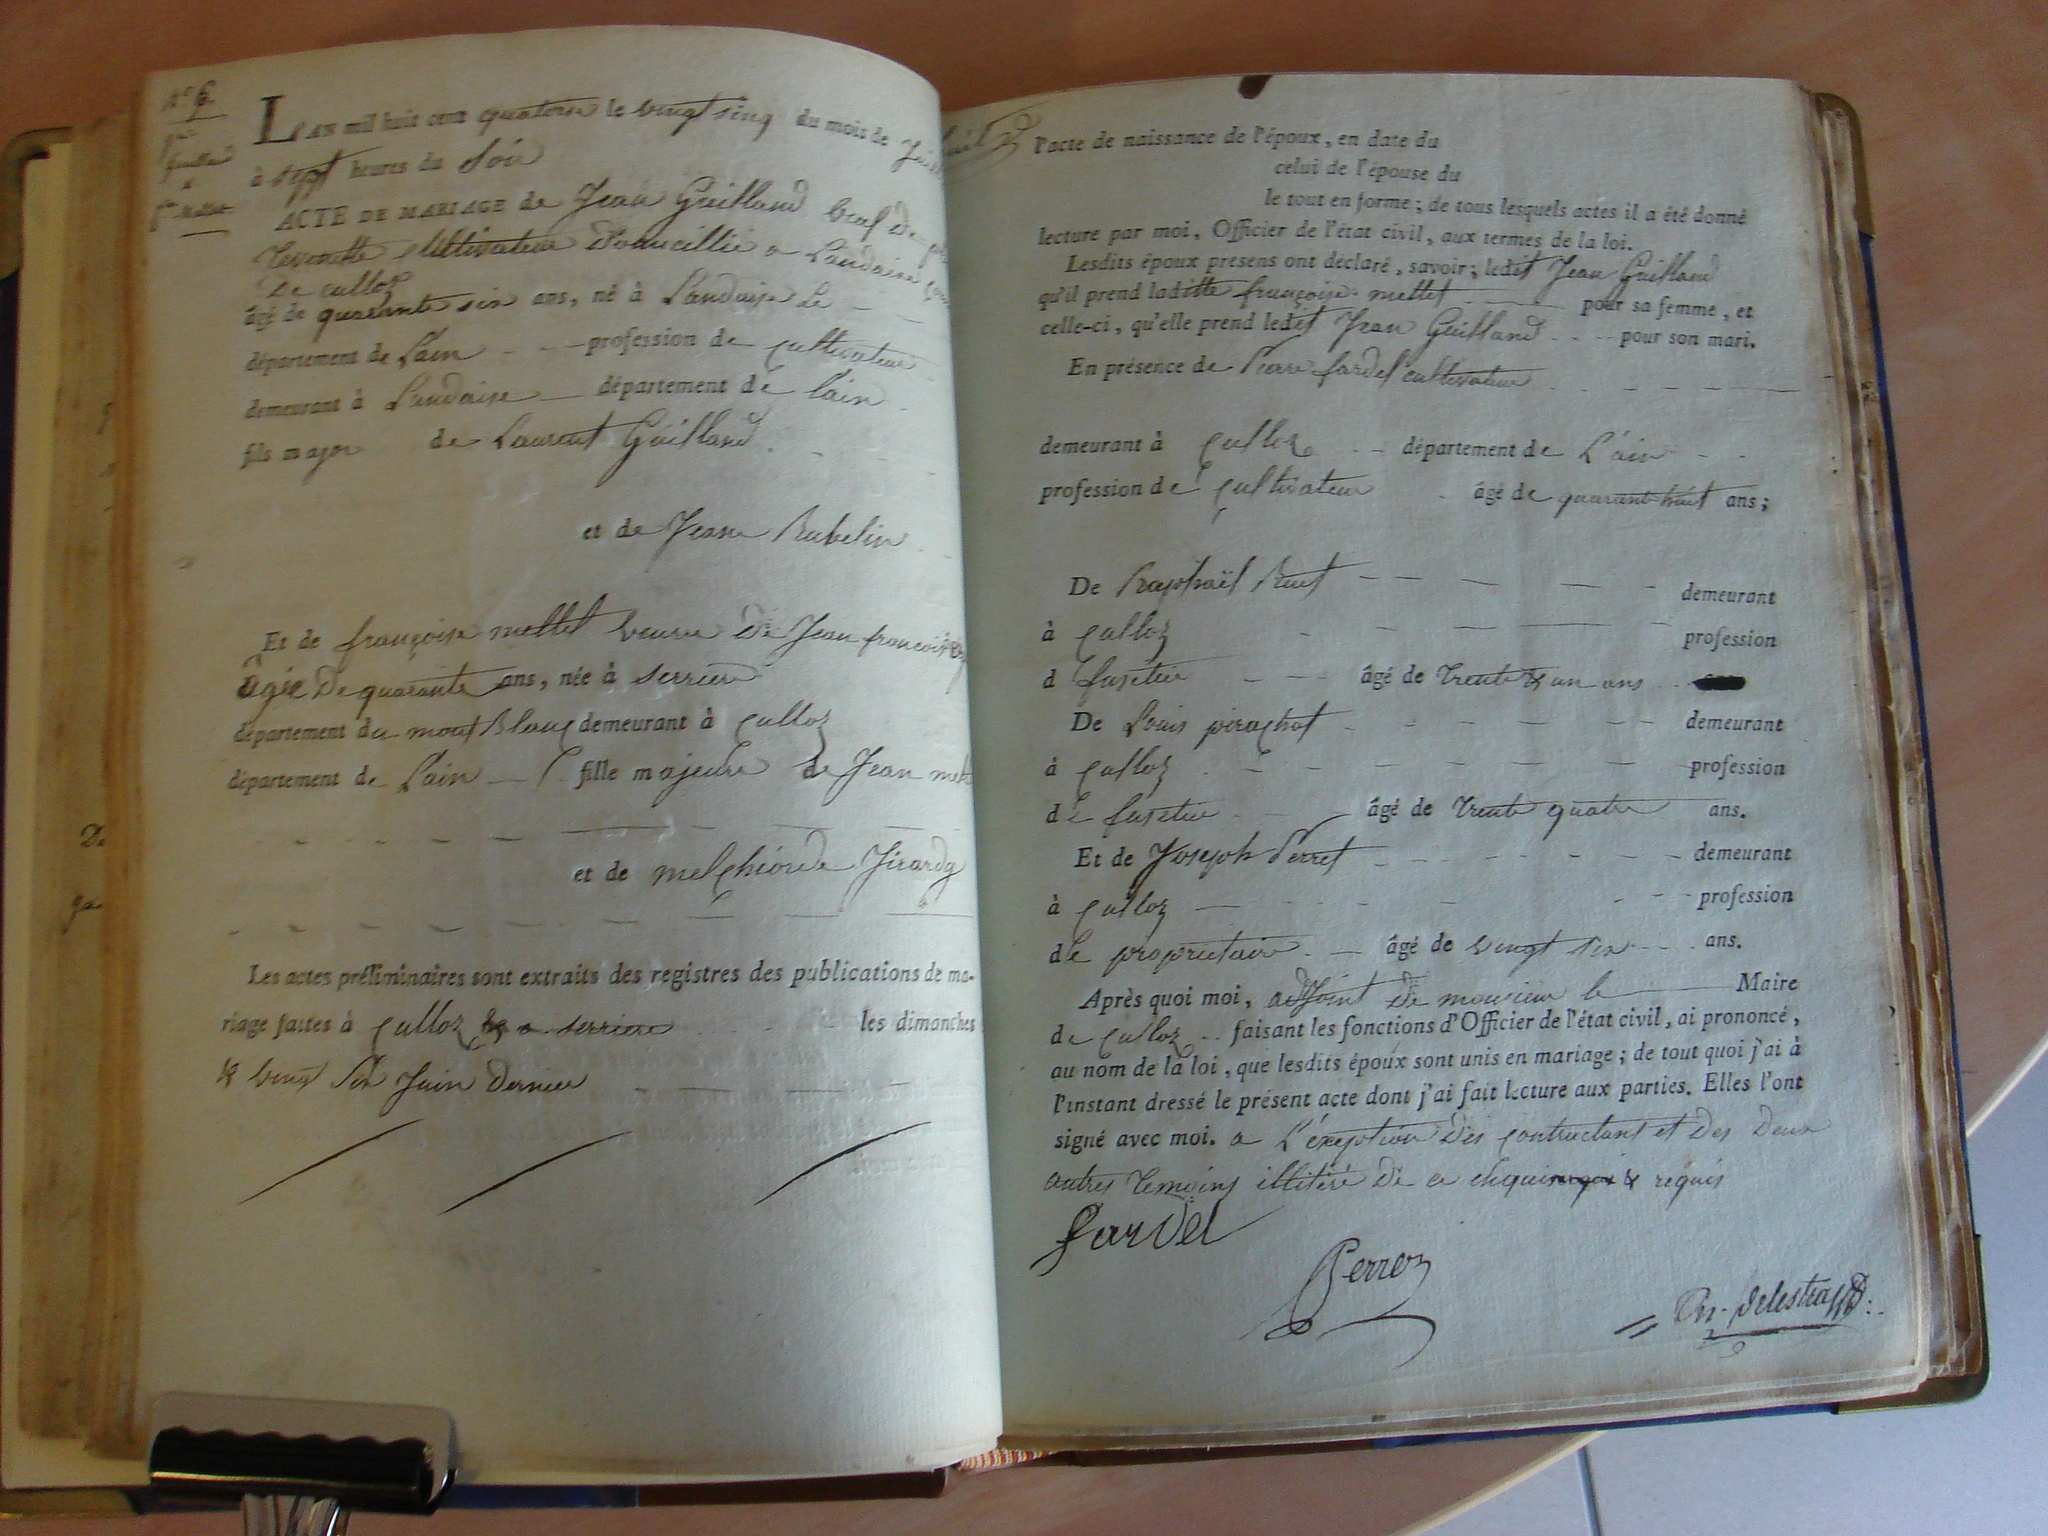 n.º 6.
Guilland
&
Mettet
L'AN mil huit cent quatorse le vingt sinq du mois de
à sept heures du Soir
ACTE DE MARIAGE de Jean Guilland veuf de
cultivateur domicillié a Landaise
de culloz
âgé de quarante six ans, né à Landaise le
département de L'ain profession de cultivateur
demeurant à Landaise département de l'ain
fils major de Laurent Guilland
et de Jeane Rubelin
Et de françoise mettet veuve de Jean francois
âgée De quarante ans, née à serriere
département du mont Blanc demeurant à Culloz
département de L'ain fille majeure de Jean
et de melchiorde Girardy
Les actes préliminaires sont extraits des registres des publications de ma-
riage faites à Culloz & a serriere les dimanches
vingt six Juin dernier
l'acte de naissance de l'époux, en date du
celui de l'épouse du
le tout en forme ; de tous lesquels actes il a été donné
lecture par moi, Officier de l'état civil, aux termes de la loi.
Lesdits époux présens ont déclaré, savoir ; ledit Jean Guilland
qu'il prend laditte françoise mettet pour sa femme, et
celle-ci, qu'elle prend ledit Jean Guilland pour son mari.
En présence de Piere fardel cultivateur
demeurant à Culloz département de L'ain
profession de Cultivateur âgé de quarant huit ans ;
De Raphaël demeurant
à Culloz profession
d âgé de trente & un ans
De Louis pirachot demeurant
à Culloz profession
de âgé de trente quatre ans.
Et de Joseph Perret demeurant
à Culloz profession
de proprietaire âgé de vingt six ans.
Après quoi moi, adjoint de monsieur le Maire
de Culloz faisant les fonctions d'Officier de l'état civil, ai prononcé,
au nom de la loi, que lesdits époux sont unis en mariage ; de tout quoi j'ai à
l'instant dressé le présent acte dont j'ai fait lecture aux parties. Elles l'ont
signé avec moi. a L'éxeption des contractant et des deux
autres temoins illitéré de ce requis
fardel
Perret
Delestra